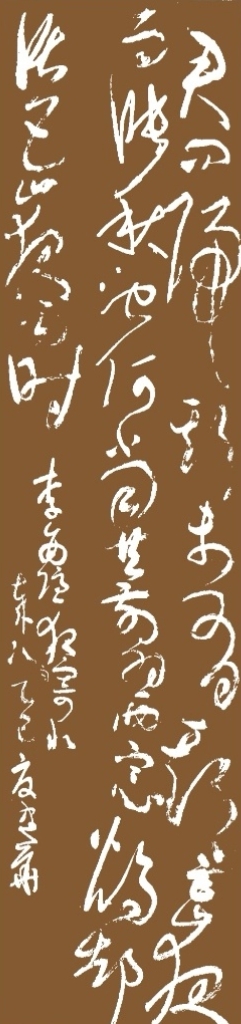 君问归期未有期巴山夜
雨涨秋池何当共剪西窗烛却
话巴山夜雨时
李商隐夜雨寄北
乙巳夏